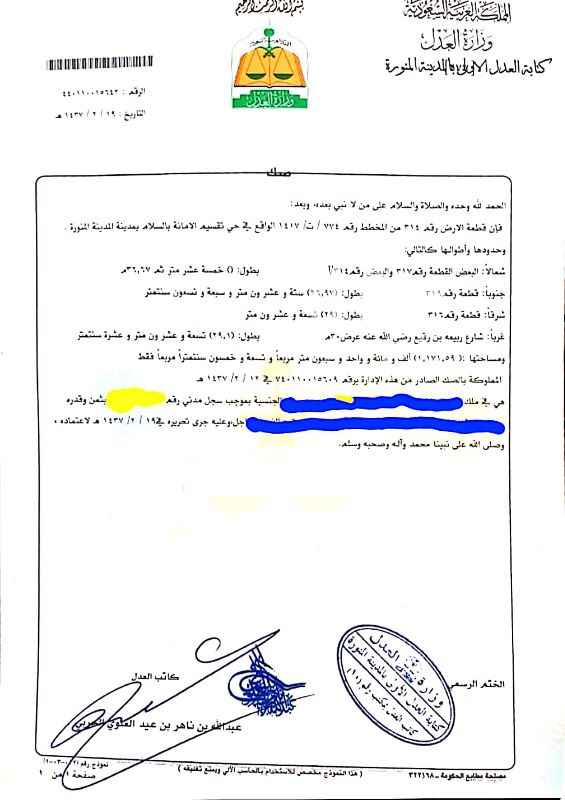 بسم الله الرحمن الرحيم
المملكة العربية السعودية
وزارة العدل
كتابة العدل الأولى بالمدينة المنورة
وزارة العدل
الرقم : ٤٤٠١١٠٠١٥٦٤٢
التاريخ : ١٩ / ٢ / ١٤٣٧ هـ
صك
الحمد لله وحده والصلاة والسلام على من لا نبي بعده، وبعد:
فإن قطعة الارض رقم ٣١٤ من المخطط رقم ٧٧٤ / ت/ ١٤١٧ الواقع في حي تقسيم الامانة بالسلام بمدينة المدينة المنورة .
وحدودها وأطوالها كالتالي:
شمالاً: البعض القطعة رقم ٣١٧ والبعض رقم ٣١٤/أ بطول: () خمسة عشر متر ثم ٣٦,٦٧م
جنوباً: قطعة رقم بطول: (٢٦,٩٧) ستة و عشرون متر و سبعة و تسعون سنتمتر
شرقاً: قطعة رقم ٣١٦ بطول: (٢٩) تسعة و عشرون متر
غرباً: شارع ربيعه بن رفيع رضي الله عنه عرض ٣٠م بطول: (٢٩,١) تسعة و عشرون متر و عشرة سنتمتر
ومساحتها : (١,١٧١,٥٩) ألف و مائة و واحد و سبعون متر مربعاً و تسعة و خمسون سنتمتراً مربعاً فقط
المملوكة بالصك الصادر من هذه الإدارة برقم ٧٤٠١١٠٠١٥٦٠٩ في ١٢ / ٢ / ١٤٣٧ هـ
هي في ملك الجنسية بموجب سجل مدني رقم بثمن وقدره
وعليه جرى تحريره في ١٩ / ٢ / ١٤٣٧ هـ لاعتماده ،
وصلى الله على نبينا محمد وآله وصحبه وسلم.
كاتب العدل
الختم الرسمي
وزارة العدل
كتابة العدل الأولى بالمدينة المنورة
عبدالله بن ناهر بن عيد العلوي الحربي
مصلحة مطابع الحكومة - ٣٢٢١٦٨
( هذا النموذج مخصص للاستخدام بالحاسب الآلي ويمنع تغليفه )
نموذج رقم
صفحة ١ من ١